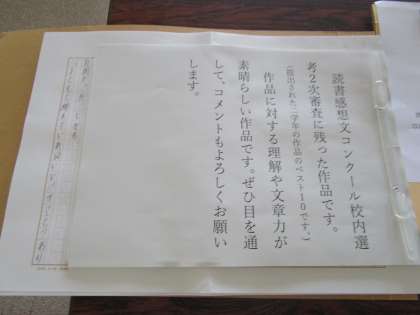 読書感想文コンクール校内選
考2次審査に残った作品です。
(提出された二学年の作品のベスト10です。)
作品に対する理解や文章力が
素晴らしい作品です。ぜひ目を通
して、コメントもよろしくお願い
します。